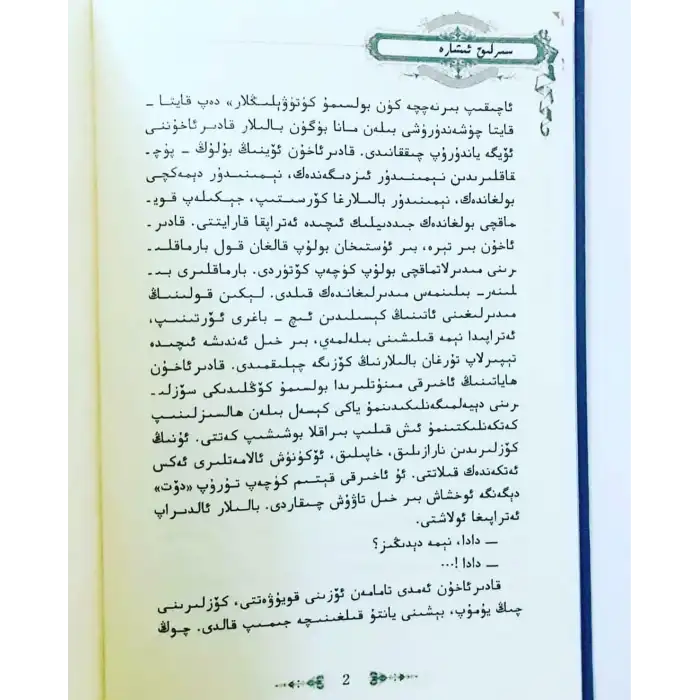 سىرلىق ئىشارە
ئاچىقىپ بىرنەچچە كۈن بولسىمۇ كۈتۈۋېلىڭلار» دەپ قايتا ـ
قايتا چۈشەندۈرۈشى بىلەن مانا بۈگۈن بالىلار قادىر ئاخۇننى
ئۆيگە ياندۇرۇپ چىققانىدى. قادىر ئاخۇن ئۆينىڭ بۇلۇڭ ـ پۇچـ
قاقلىرىدىن نېمىنىدۇر ئىزدىگەندەك، نېمىنىدۇر دېمەكچى
بولغاندەك، نېمىنىدۇر بالىلارغا كۆرسىتىپ، جېكىلەپ قويـ
ماقچى بولغاندەك جىددىيلىك ئىچىدە ئەتراپقا قارايتتى. قادىر
ئاخۇن بىر تېرە، بىر ئۇستىخان بولۇپ قالغان قول بارماقلىـ
رىنى مىدىرلاتماقچى بولۇپ كۈچەپ كۆتۈردى. بارماقلىرى بىـ
لىنەرـ بىلىنمەس مىدىرلىغاندەك قىلدى. لېكىن قولىنىڭ
مىدىرلىغىنى ئاتىنىڭ كېسىلىدىن ئىچ ـ باغرى ئۆرتىنىپ،
ئەتراپىدا نېمە قىلىشىنى بىلەلمەي، بىر خىل ئەندىشە ئىچىدە
تىپىرلاپ تۇرغان بالىلارنىڭ كۆزىگە چېلىقمىدى. قادىر ئاخۇن
ھاياتىنىڭ ئاخىرقى مىنۇتلىرىدا بولسىمۇ كۆڭلىدىكى سۆزلىـ
رىنى دېيەلمىگەنلىكىدىنمۇ ياكى كېسەل بىلەن ھالسىزلىنىپ
كەتكەنلىكتىنمۇ ئىش قىلىپ بىراقلا بوشىشىپ كەتتى. ئۇنىڭ
كۆزلىرىدىن نارازىلىق، خاپىلىق، ئۆكۈنۈش ئالامەتلىرى ئەكس
ئەتكەندەك قىلاتتى. ئۇ ئاخىرقى قېتىم كۈچەپ تۇرۇپ «دۆت»
دېگەنگە ئوخشاش بىر خىل تاۋۇش چىقاردى. بالىلار ئالدىراپ
ئەتراپىغا ئولاشتى.
ـــ دادا، نېمە دېدىڭىز؟
ـــ دادا !...
قادىر ئاخۇن ئەمدى تامامەن ئۆزىنى قويۇۋەتتى، كۆزلىرىنى
چىڭ يۇمۇپ، بېشىنى يانتۇ قىلغىنىچە جىمىپ قالدى. چوڭ
2